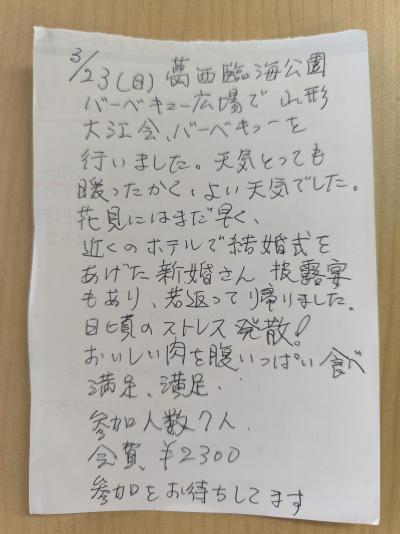 3/23(日) 葛西臨海公園
バーベキュー広場で 山形
大江会、バーベキューを
行いました。天気とっても
暖ったかく、よい天気でした。
花見にはまだ早く、
近くのホテルで結婚式を
あげた新婚さん 披露宴
もあり、若返って帰りました。
日頃のストレス発散!
おいしい肉を腹いっぱい食べ
満足、満足、
参加人数7人.
会費、¥2300
参加をお待ちしてます